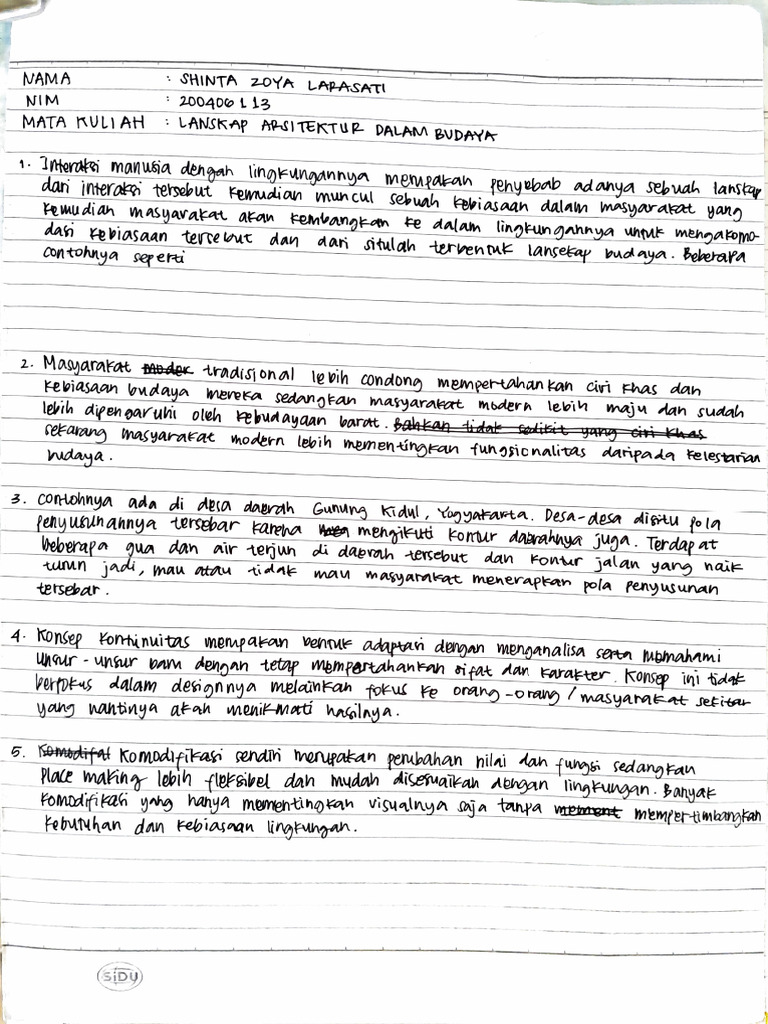 NAMA : SHINTA ZOYA LARASATI
NIM : 200406113
MATA KULIAH : LANSKAP ARSITEKTUR DALAM BUDAYA
1. Interaksi manusia dengan lingkungannya merupakan penyebab adanya sebuah lanskap
dari interaksi tersebut kemudian muncul sebuah kebiasaan dalam masyarakat yang
kemudian masyarakat akan kembangkan ke dalam lingkungannya untuk mengakomo-
dasi kebiasaan tersebut dan dari situlah terbentuk lansekap budaya. Beberapa
contohnya seperti
2. Masyarakat moder tradisional lebih condong mempertahankan ciri khas dan
kebiasaan budaya mereka sedangkan masyarakat modern lebih maju dan sudah
lebih dipengaruhi oleh kebudayaan barat. Bahkan tidak sedikit yang ciri khas
sekarang masyarakat modern lebih mementingkan fungsionalitas daripada kelestarian
budaya.
3. Contohnya ada di desa daerah Gunung Kidul, Yogyakarta. Desa-desa disitu pola
penyusunannya tersebar karena mengikuti kontur daerahnya juga. Terdapat
beberapa gua dan air terjun di daerah tersebut dan kontur jalan yang naik
turun jadi, mau atau tidak mau masyarakat menerapkan pola penyusunan
tersebar.
4. Konsep kontinuitas merupakan bentuk adaptasi dengan menganalisa serta memahami
unsur-unsur baru dengan tetap mempertahankan sifat dan karakter. Konsep ini tidak
berfokus dalam designnya melainkan fokus ke orang-orang / masyarakat sekitar
yang nantinya akan menikmati hasilnya.
5. Komodifat Komodifikasi sendiri merupakan perubahan nilai dan fungsi sedangkan
Place making lebih fleksibel dan mudah disesuaikan dengan lingkungan. Banyak
komodifikasi yang hanya mementingkan visualnya saja tanpa mement mempertimbangkan
kebutuhan dan kebiasaan lingkungan.
SiDU